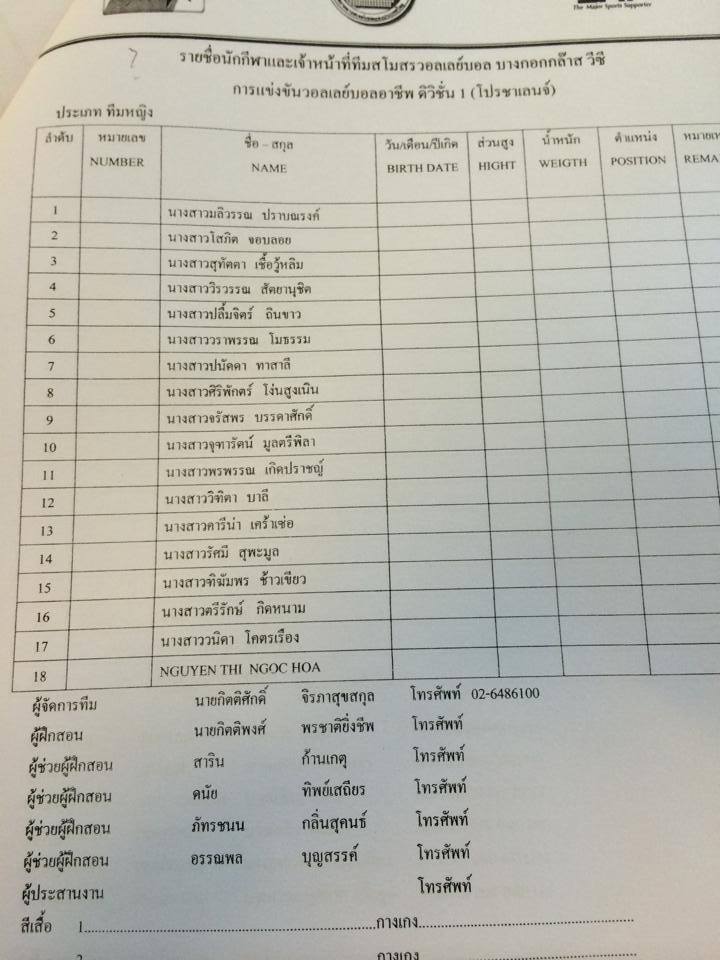 The Major Sports Supporter
รายชื่อนักกีฬาและเจ้าหน้าที่ทีมสโมสรวอลเลย์บอล บางกอกกล๊าส วีซี
การแข่งขันวอลเลย์บอลอาชีพ ดิวิชั่น 1 (โปรชาเลนจ์)
ประเภท ทีมหญิง
ลำดับ หมายเลข ชื่อ – สกุล วัน/เดือน/ปีเกิด ส่วนสูง น้ำหนัก ตำแหน่ง หมายเห
NUMBER NAME BIRTH DATE HIGHT WEIGTH POSITION REMA
1 นางสาวมลิวรรณ ปราบณรงค์
2 นางสาวโสภิต จอบลอย
3 นางสาวสุทัตตา เชื้อวู้หลิม
4 นางสาววิรวรรณ สัตยานุชิต
5 นางสาวปลื้มจิตร์ ถินขาว
6 นางสาววราพรรณ โมธรรม
7 นางสาวปนัดดา ทาสาลี
8 นางสาวศิริพักตร์ โง่นสูงเนิน
9 นางสาวจรัสพร บรรดาศักดิ์
10 นางสาวจุฑารัตน์ มูลตรีพิลา
11 นางสาวพรพรรณ เกิดปราชญ์
12 นางสาววิฑิตา บาลี
13 นางสาวคารีน่า เคร้าเซ่อ
14 นางสาวรัศมี สุพะมูล
15 นางสาวฑิฆัมพร ช้าวเขียว
16 นางสาวตรีรักษ์ กิดหนาม
17 นางสาววนิดา โคตรเรือง
18 NGUYEN THI NGOC HOA
ผู้จัดการทีม นายกิตติศักดิ์ จิรภาสุขสกุล โทรศัพท์ 02-6486100
ผู้ฝึกสอน นายกิตติพงศ์ พรชาติยิ่งชีพ โทรศัพท์
ผู้ช่วยผู้ฝึกสอน สาริน ก้านเกตุ โทรศัพท์
ผู้ช่วยผู้ฝึกสอน ดนัย ทิพย์เสถียร โทรศัพท์
ผู้ช่วยผู้ฝึกสอน ภัทรชนน กลิ่นสุคนธ์ โทรศัพท์
ผู้ช่วยผู้ฝึกสอน อรรณพล บุญสรรค์ โทรศัพท์
ผู้ประสานงาน โทรศัพท์
สีเสื้อ 1.....กางเกง.....
2.....กางเกง.....